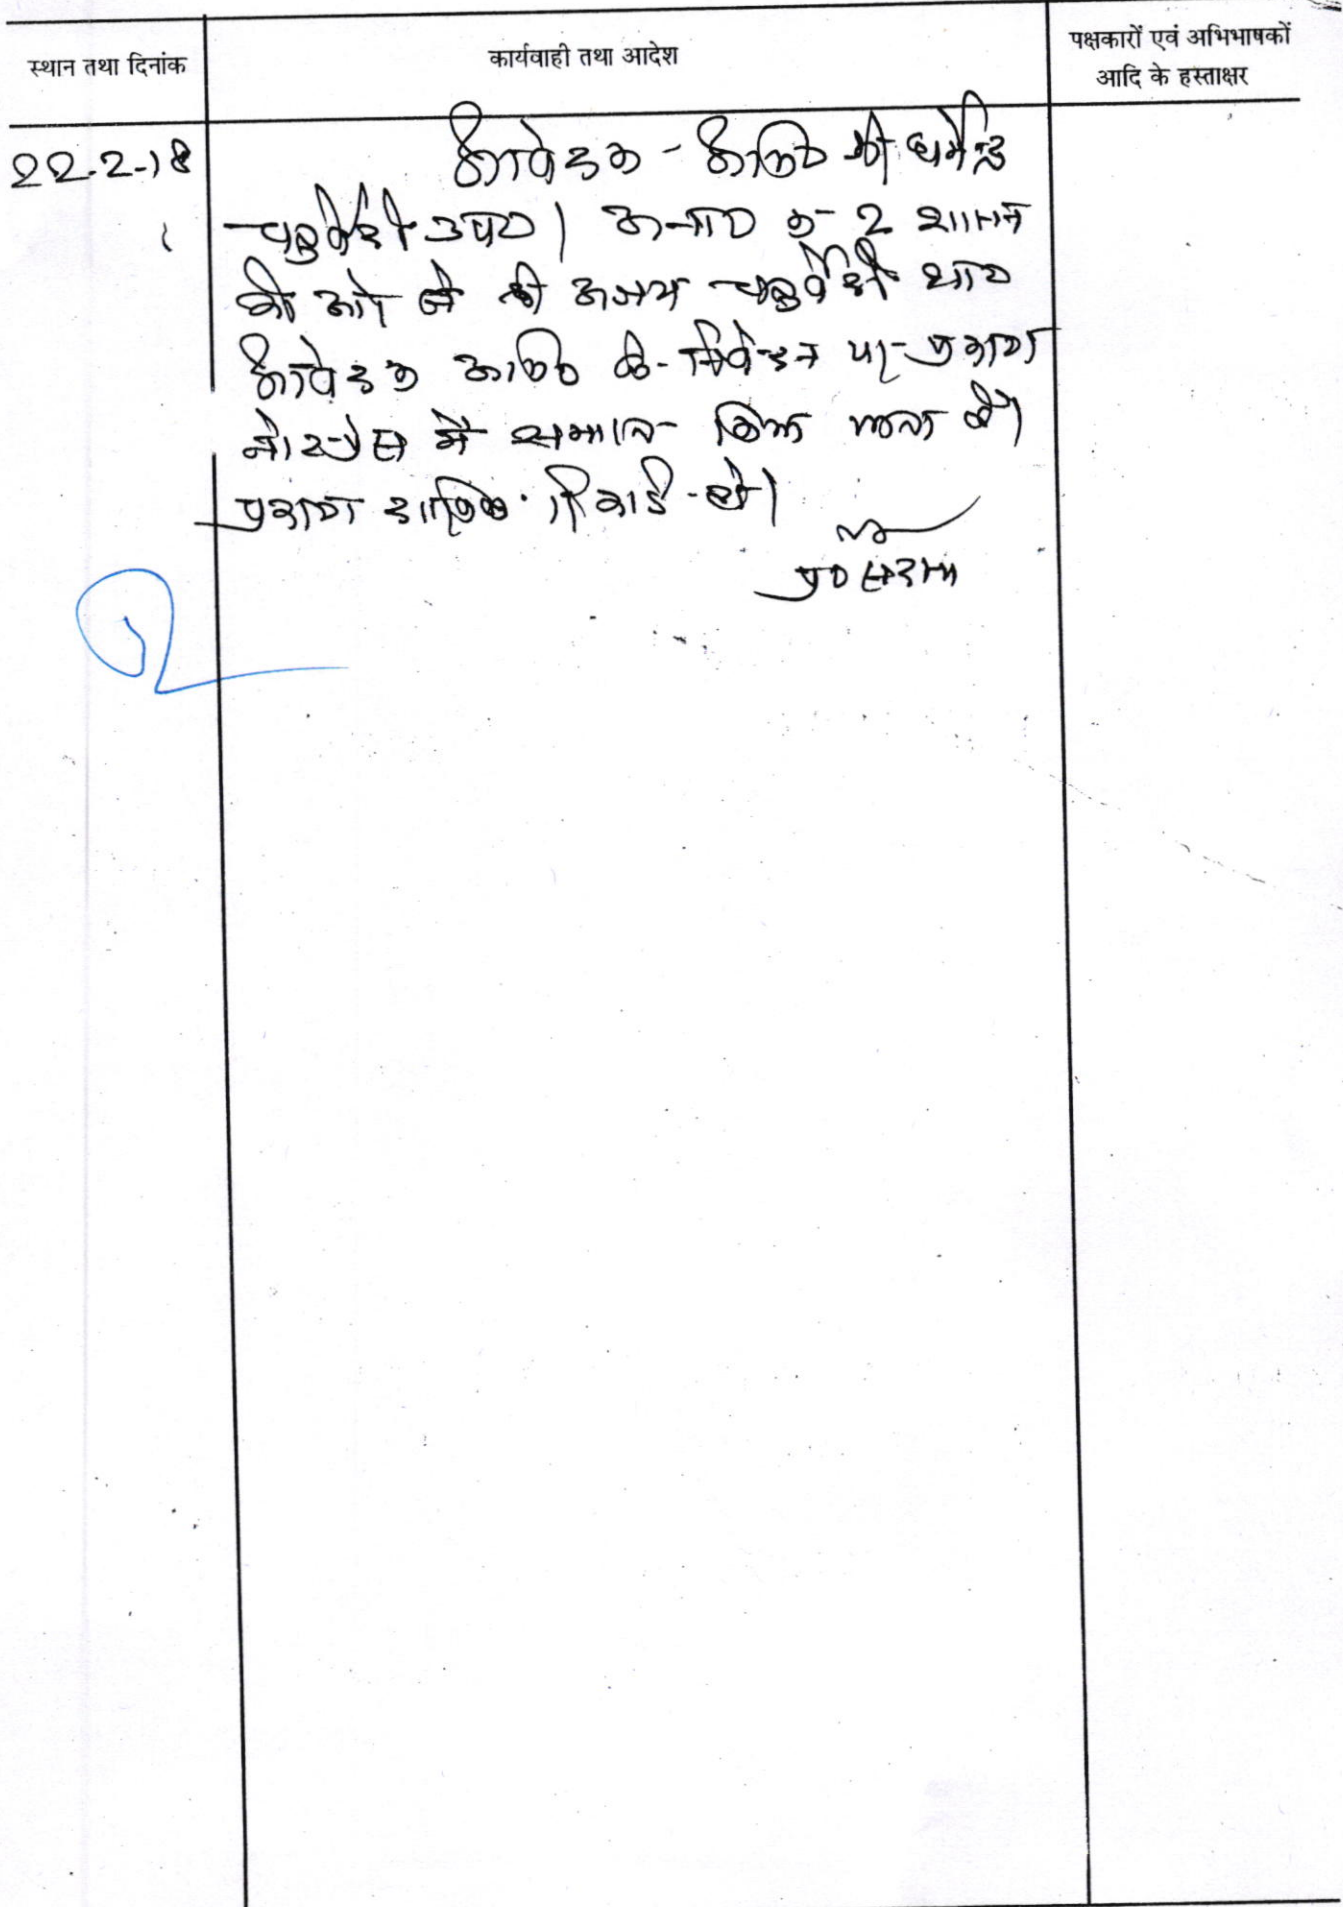 स्थान तथा दिनांक
कार्यवाही तथा आदेश
पक्षकारों एवं अभिभाषकों
आदि के हस्ताक्षर
22.2.18
आवेदक - अभि० श्री धर्मेन्द्र
चतुर्वेदी उप० । अना० क्र- 2 शासन
की ओर से श्री अजय चतुर्वेदी
आवेदक अभि० के निवेदन पर प्रकरण
नो० प्रेस में समाप्त किया जाता है।
प्रकरण दाखिल रिकार्ड हो।